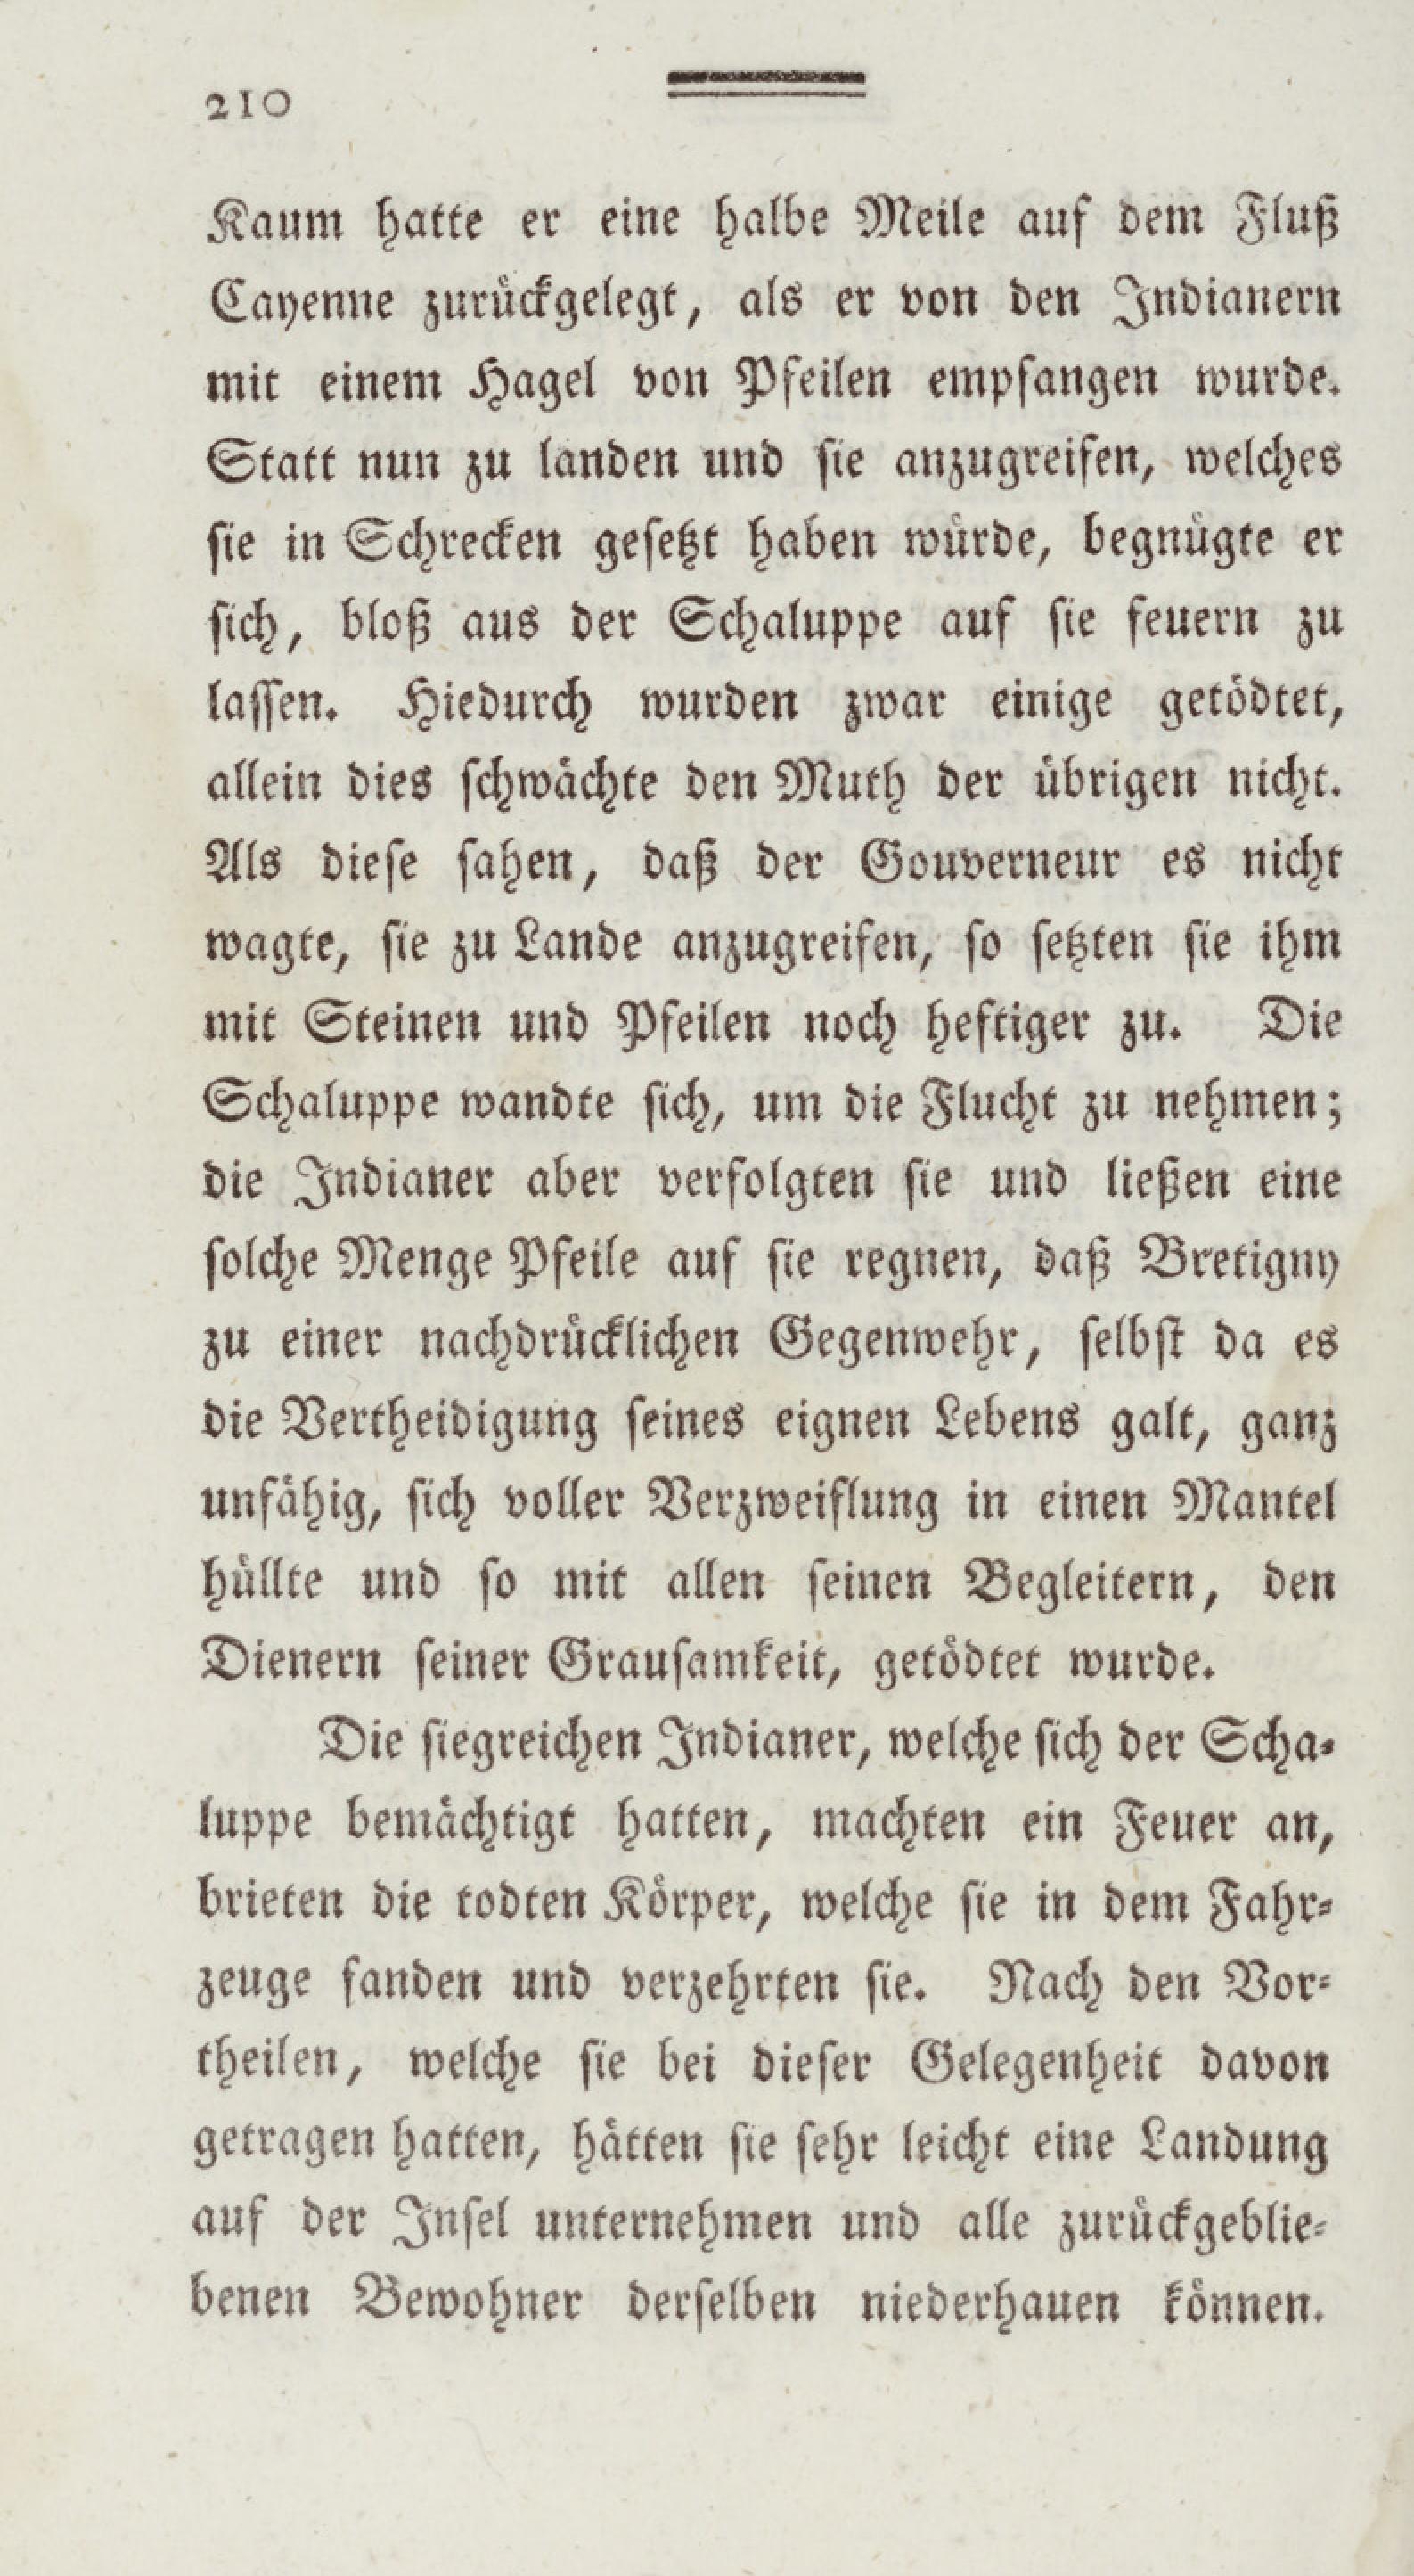 210
Kaum hatte er eine halbe Meile auf dem Fluß
Cayenne zurückgelegt, als er von den Indianern
mit einem Hagel von Pfeilen empfangen wurde.
Statt nun zu landen und sie anzugreifen, welches
sie in Schrecken gesetzt haben würde, begnügte er
sich, bloß aus der Schaluppe auf sie feuern zu
lassen. Hiedurch wurden zwar einige getödtet,
allein dies schwächte den Muth der übrigen nicht.
Als diese sahen, daß der Gouverneur es nicht
wagte, sie zu Lande anzugreifen, so setzten sie ihm
mit Steinen und Pfeilen noch heftiger zu. Die
Schaluppe wandte sich, um die Flucht zu nehmen;
die Indianer aber verfolgten sie und ließen eine
solche Menge Pfeile auf sie regnen, daß Bretigny
zu einer nachdrücklichen Gegenwehr, selbst da es
die Vertheidigung seines eignen Lebens galt, ganz
unfähig, sich voller Verzweiflung in einen Mantel
hüllte und so mit allen seinen Begleitern, den
Dienern seiner Grausamkeit, getödtet wurde.
Die siegreichen Indianer, welche sich der Scha-
luppe bemächtigt hatten, machten ein Feuer an,
brieten die todten Körper, welche sie in dem Fahr-
zeuge fanden und verzehrten sie. Nach den Vor-
theilen, welche sie bei dieser Gelegenheit davon
getragen hatten, hätten sie sehr leicht eine Landung
auf der Insel unternehmen und alle zurückgeblie-
benen Bewohner derselben niederhauen können.